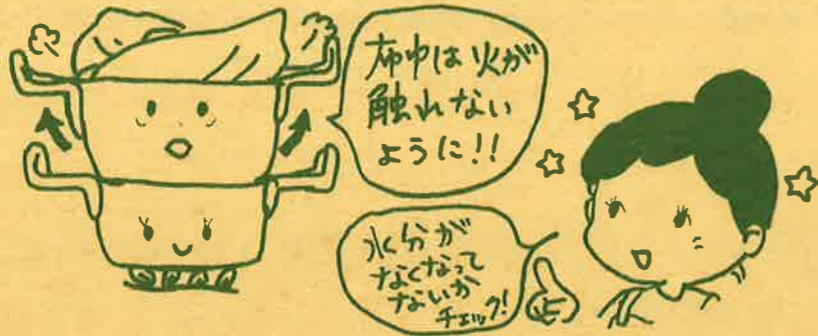 布巾は火が
触れない
ように!!
水分が
なくなって
ないか
チェック!